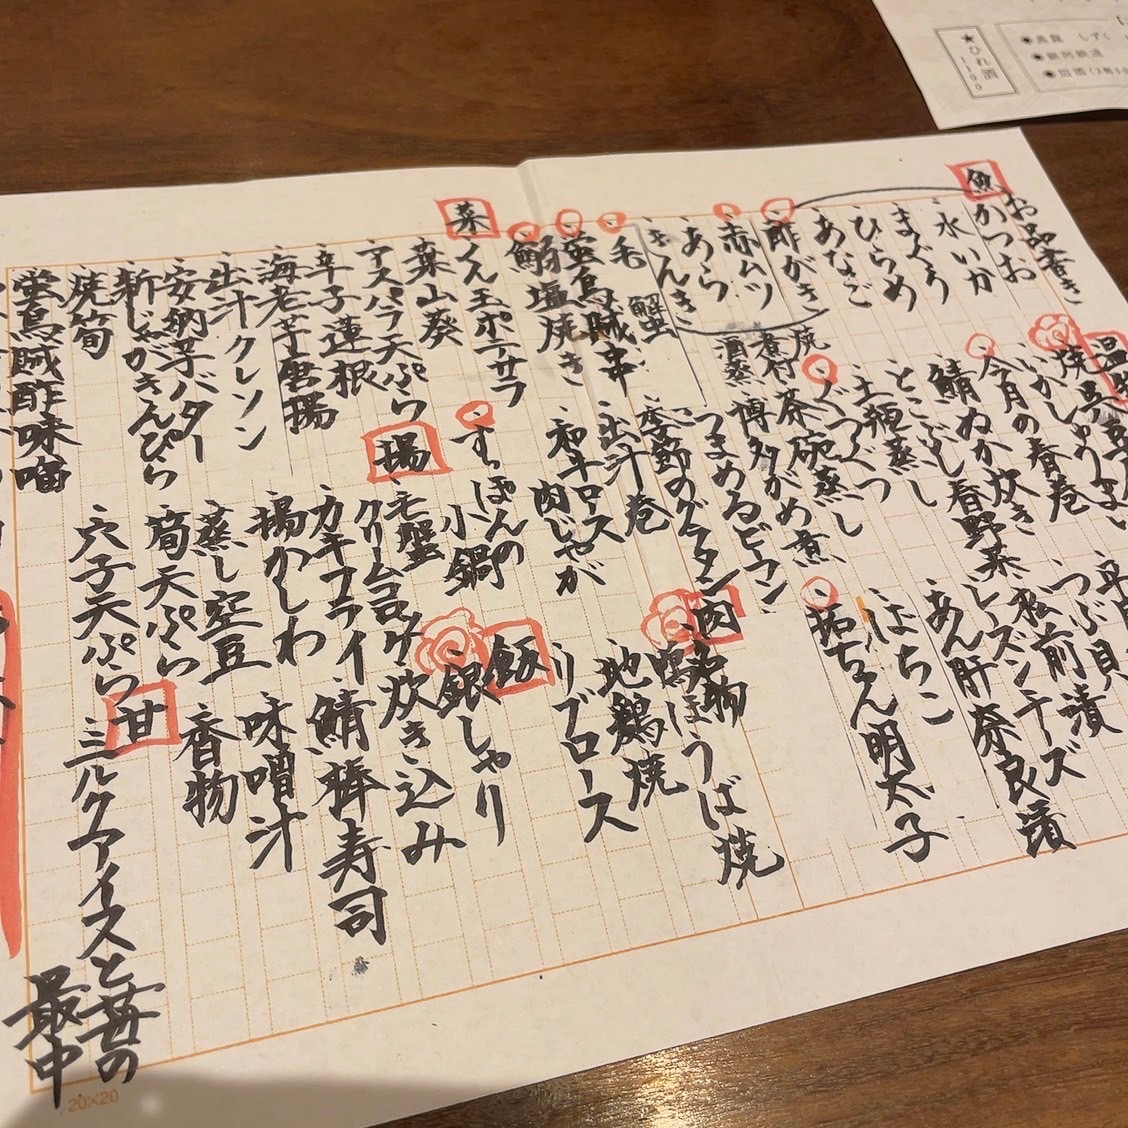 お品書き
魚
かつお
水いか
まぐろ
ひらめ
あなご
酢がき
赤ムツ
あら
きんき
焼
煮付
酒蒸
毛蟹
蛍烏賊串
鰤塩焼き
菜
くん玉ポテサラ
葉山葵
アスパラ天ぷら
辛子蓮根
海老芋唐揚
出汁クレソン
安納芋バター
新じゃがきんぴら
焼筍
蛍烏賊酢味噌
温
いかしゅうまい
今月の春巻
鯖ぬか炊き
とこぶし春野菜
土瓶蒸し
ぐつぐつ
茶碗蒸し
博多がめ煮
つまめるビーフン
季節のグラタン
出汁巻
和牛ロース
肉じゃが
すっぽんの
小鍋
揚
毛蟹
クリームコロッケ
カキフライ
揚かしわ
蒸し空豆
筍天ぷら
穴子天ぷら
つぶ貝
松前漬
レーズンチーズ
あん肝奈良漬
ばちこ
拓ちゃん明太子
肉
鴨ほうば焼
地鶏焼
リブロース
飯
銀しゃり
炊き込み
鯖棒寿司
味噌汁
香物
甘
ミルクアイスと苺の
最中
20×20
★ひれ酒
1100